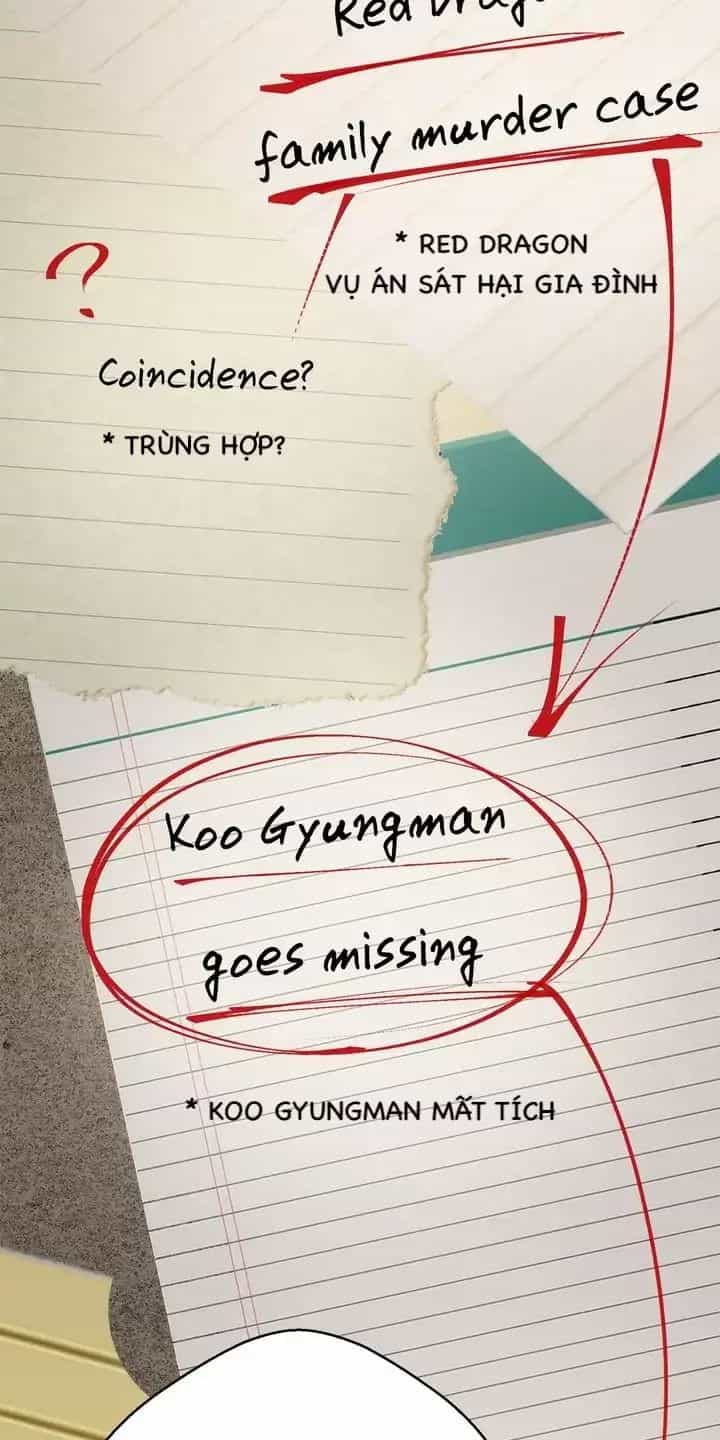 Red Drag
family murder case
* RED DRAGON
VỤ ÁN SÁT HẠI GIA ĐÌNH
?
Coincidence?
* TRÙNG HỢP?
Koo Gyungman
goes missing
* KOO GYUNGMAN MẤT TÍCH